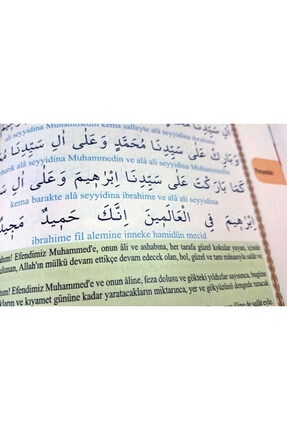 ali seyyidina Muhammedin kema salleyte ala seyyidina ibrahime
وَبَارِكْ عَلَى سَيِّدِنَا مُحَمَّدٍ وَعَلَى اٰلِ سَيِّدِنَا
barik alâ seyyidina Muhammedin ve alâ ali seyyidina Muhammedin
Perşembe
كَمَا بَارَكْتَ عَلَى سَيِّدِنَا اِبْرٰهِيمَ وَعَلَى اٰلِ
kema barakte alâ seyyidina ibrahime ve alâ ali seyyidina
اِبْرٰهِيمَ فِى الْعَالَمِينَ اِنَّكَ حَمِيدٌ مَجِيدٌ
ibrahime fil alemine inneke hamidün mecid
Efendimiz Muhammed'e, onun âli ve ashabına, her tarafa güzel kokular yayan, içinde
Allah'ın mülkü devam ettikçe devam edecek olan, bol, güzel ve tam mânasıyla salât
Efendimiz Muhammed'e ve onun âline, feza dolusu ve gökteki yıldızlar sayısınca, bugüne
ve kıyamet gününe kadar yaratacakların miktarınca, yer ve gökyüzünü dengede tutacak